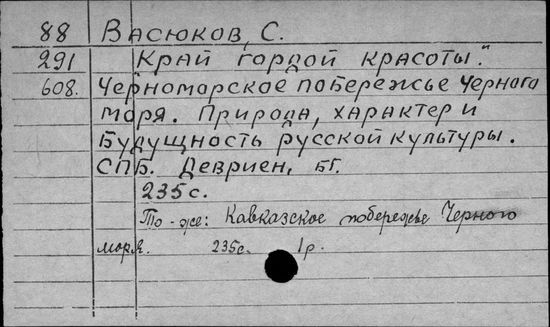 88 Васюков, С.
291 "Край гордой красоты."
608. Черноморское побережье Черного
моря. Природа, характер и
будущность русской культуры.
СПБ. Девриен, бг.
235с.
То-же: Кавказское побережье Черного
моря. 235с. 1р.